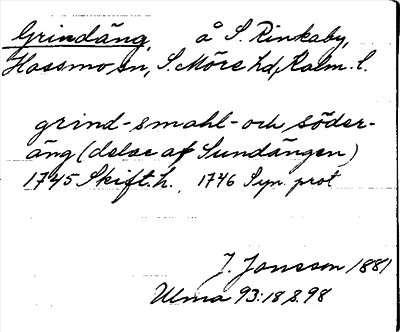 Grindäng, å S. Rinkaby,
Hossmo sn, S. Möre hd, Kalm. l.
grind-smahl- och söder-
äng (delar af Sundängen)
1745 Skift. h., 1746 Syn. prot
J. Jonsson 1881
Ulma 93:18 s. 98